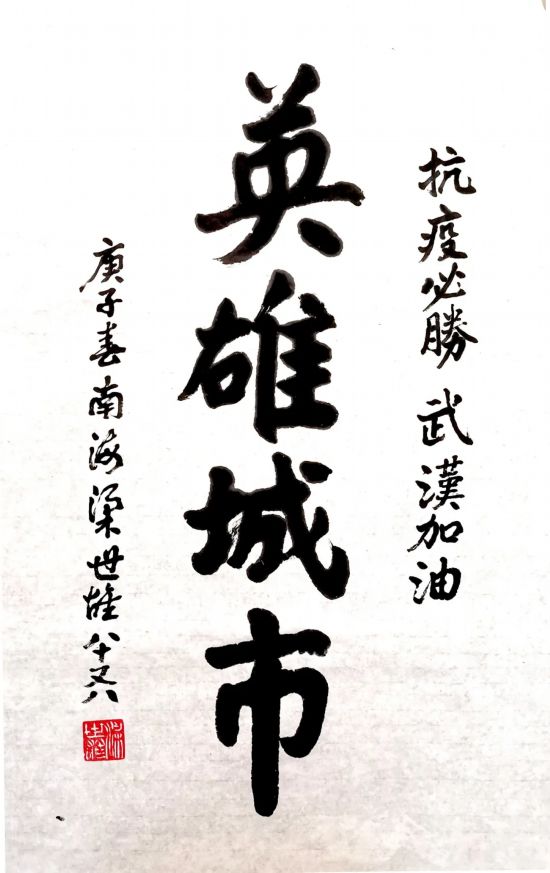 抗疫必勝 武漢加油
英雄城市
庚子春南海梁世雄八十又八
梁世雄